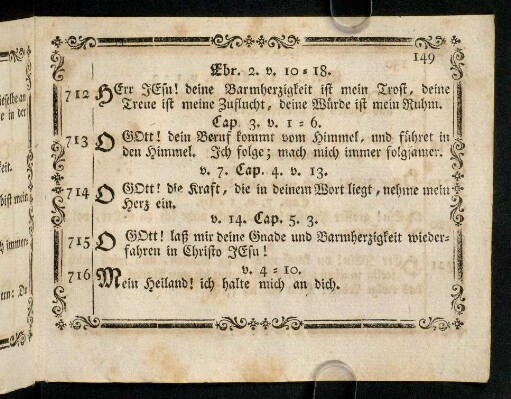 149
Ebr. 2. v. 10-18.
712 HErr JEsu! deine Barmherzigkeit ist mein Trost, deine
Treue ist meine Zuflucht, deine Würde ist mein Ruhm.
Cap. 3. v. 1-6.
713 O GOtt! dein Beruf kommt vom Himmel, und führet in
den Himmel. Ich folge; mach mich immer folgsamer.
v. 7. Cap. 4. v. 13.
714 O GOtt! die Kraft, die in deinem Wort liegt, nehme mein
Herz ein.
v. 14. Cap. 5. 3.
715 O GOtt! laß mir deine Gnade und Barmherzigkeit wieder-
fahren in Christo JEsu!
v. 4-10.
716 Mein Heiland! ich halte mich an dich.